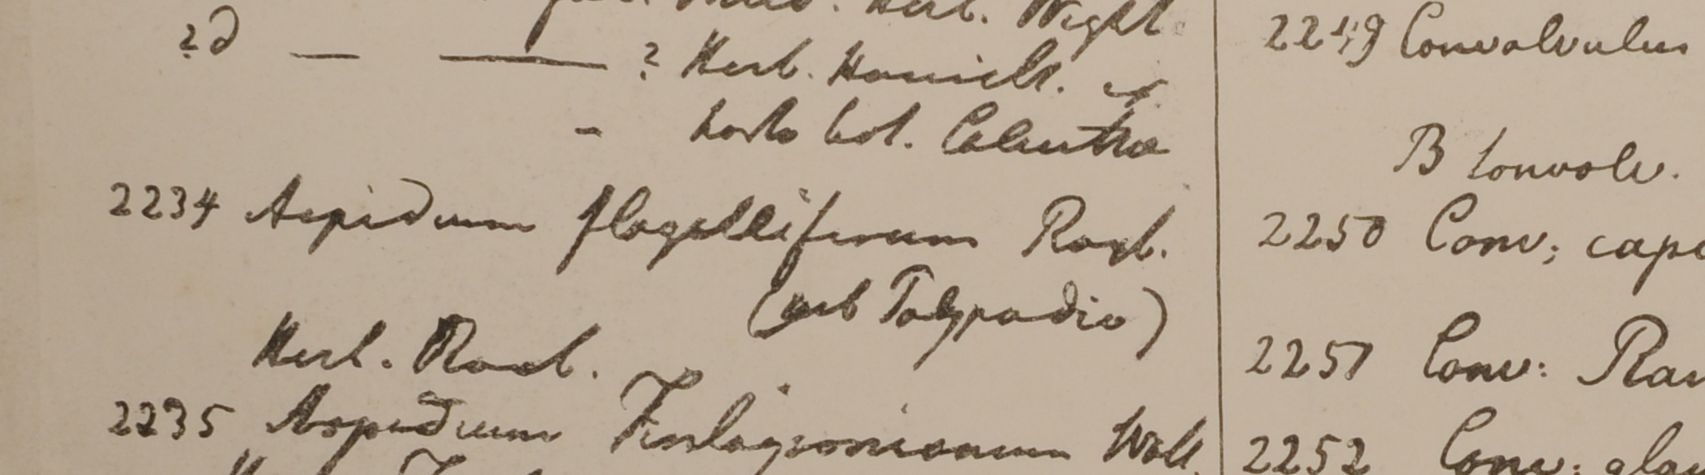 Herb. Wight
2d — — ? Herb. Hamilt.
- horto bot. Calcutta
2234 Aspidium flagelliferum Roxb.
(sub Polypodio)
Herb. Roxb.
2235 Aspidium Finlaysonianum Wall.
2249 Convolvulus
B Convolv.
2250 Conv; cap
2251 Conv:
2252 Conv: